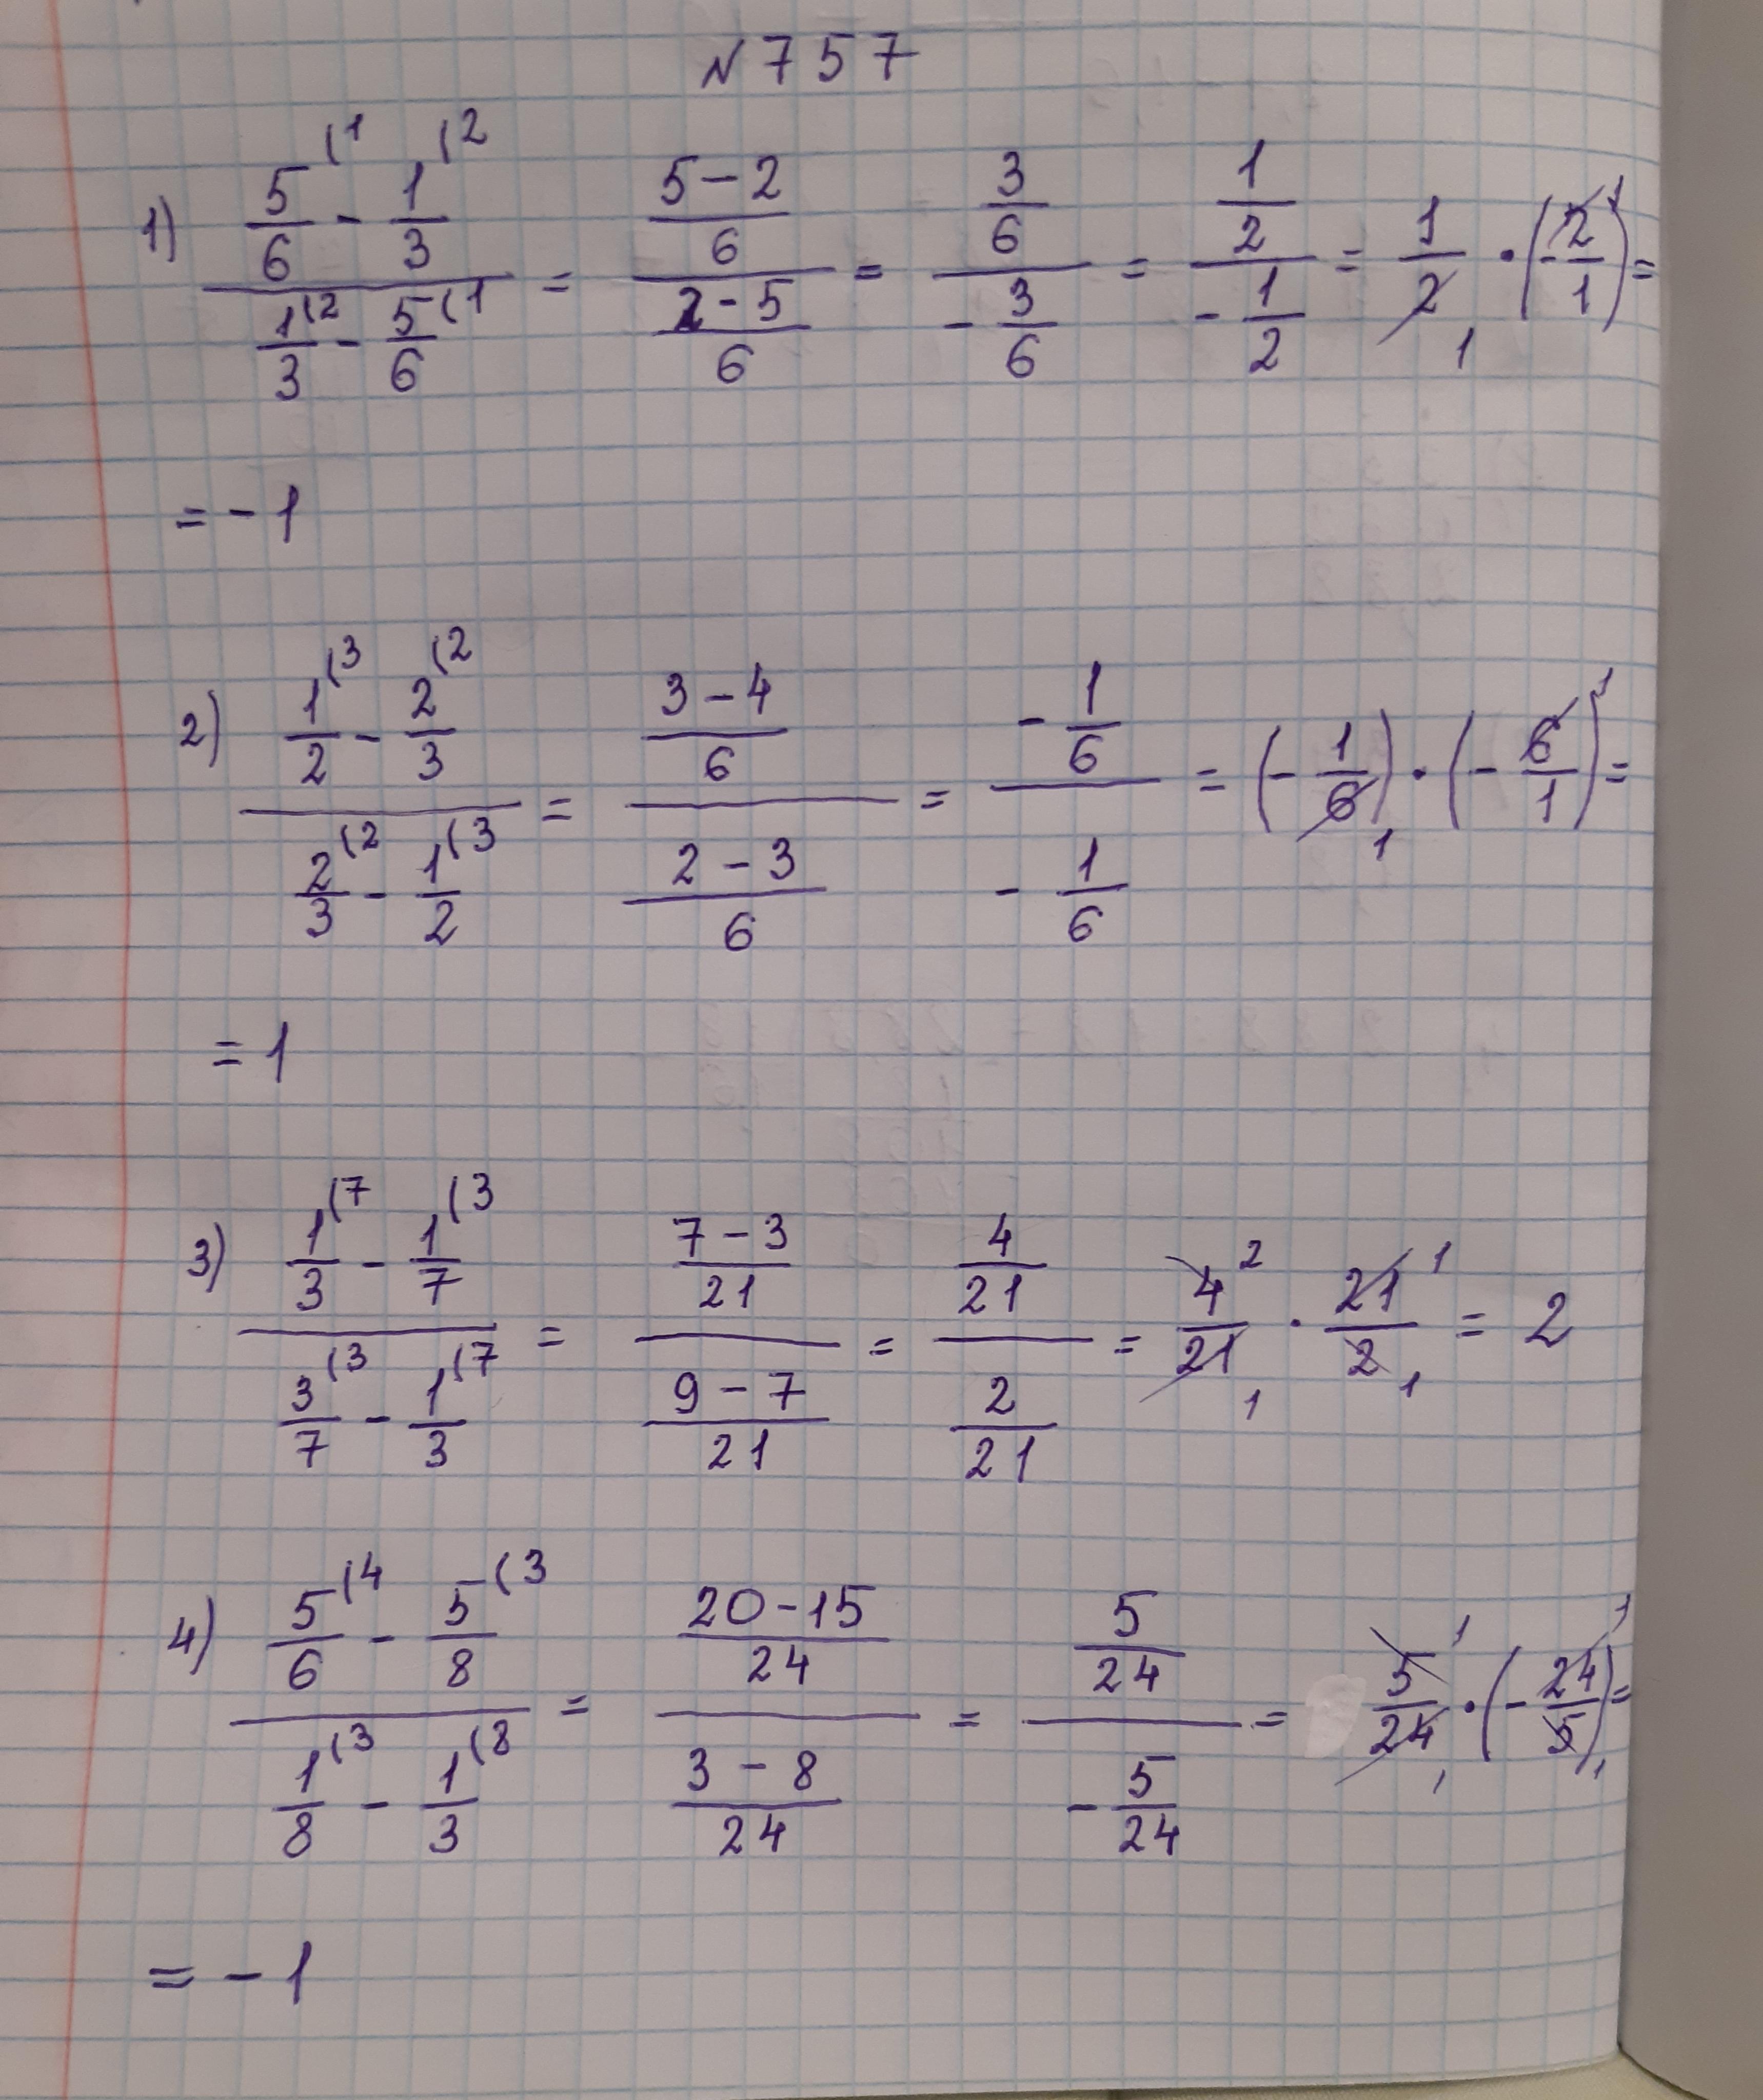 N 757
1) (5/6^(1 - 1/3^(2)/(1/3^(2 - 5/6^(1) = ((5-2)/6)/((2-5)/6) = (3/6)/(-3/6) = (1/2)/(-1/2) = 1/2 1 · (-2/1) 1 =
= -1
2) (1/2^(3 - 2/3^(2)/(2/3^(2 - 1/2^(3) = ((3-4)/6)/((2-3)/6) = (-1/6)/(-1/6) = (-1/6) 1 · (-6/1) 1 =
= 1
3) (1/3^(7 - 1/7^(3)/(3/7^(3 - 1/3^(7) = ((7-3)/21)/((9-7)/21) = (4/21)/(2/21) = 4/21 2 1 · 21/2 1 1 = 2
4) (5/6^(4 - 5/8^(3)/(1/8^(3 - 1/3^(8) = ((20-15)/24)/((3-8)/24) = (5/24)/(-5/24) = 5/24 1 1 · (-24/5) 1 1 =
= -1